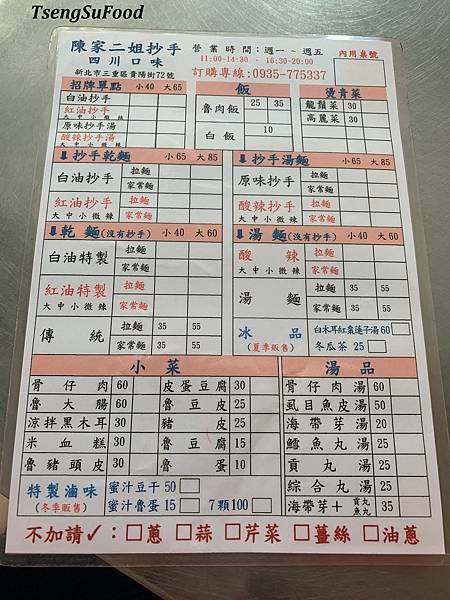 TsengSuFood
陳家二姐抄手 營業時間：週一～週五 內用桌號
四川口味 11:00-14:30 - 16:30-20:00
新北市三重區貴陽街72號 訂購專線:0935-775337
招牌單點 小40 大65 飯 燙青菜
白油抄手 魯肉飯 25 35 龍鬚菜 30
紅油抄手 大中小微辣 高麗菜 30
原味抄手湯 白飯 10
酸辣抄手湯 大中小微辣
⬇抄手乾麵 小65 大85 ⬇抄手湯麵 小65 大85
白油抄手 拉麵 家常麵 原味抄手 拉麵 家常麵
紅油抄手 大中小微辣 拉麵 家常麵 酸辣抄手 大中小微辣 拉麵 家常麵
⬇乾麵(沒有抄手) 小40 大60 ⬇湯麵(沒有抄手) 小40 大60
白油特製 拉麵 家常麵 酸辣 大中小微辣 拉麵 家常麵
紅油特製 大中小微辣 拉麵 家常麵 湯麵 拉麵 35 55 家常麵 35 55
傳統 拉麵 35 55 家常麵 35 55 冰品 (夏季販售) 白木耳紅棗蓮子湯60 冬瓜茶 25
小菜 湯品
骨仔肉 60 皮蛋豆腐 30 骨仔肉湯 60
魯大腸 60 魯豆皮 25 虱目魚皮湯 50
涼拌黑木耳 30 豬皮 25 海帶芽湯 20
米血糕 30 魯豆腐 15 鱈魚丸湯 35
魯豬頭皮 30 魯蛋 10 貢丸湯 35
特製滷味 蜜汁豆干50 綜合丸湯 35
(冬季販售) 蜜汁魯蛋15 7顆100 海帶芽＋貢丸 魚丸 35
不加請✓：□蔥 □蒜 □芹菜 □薑絲 □油蔥